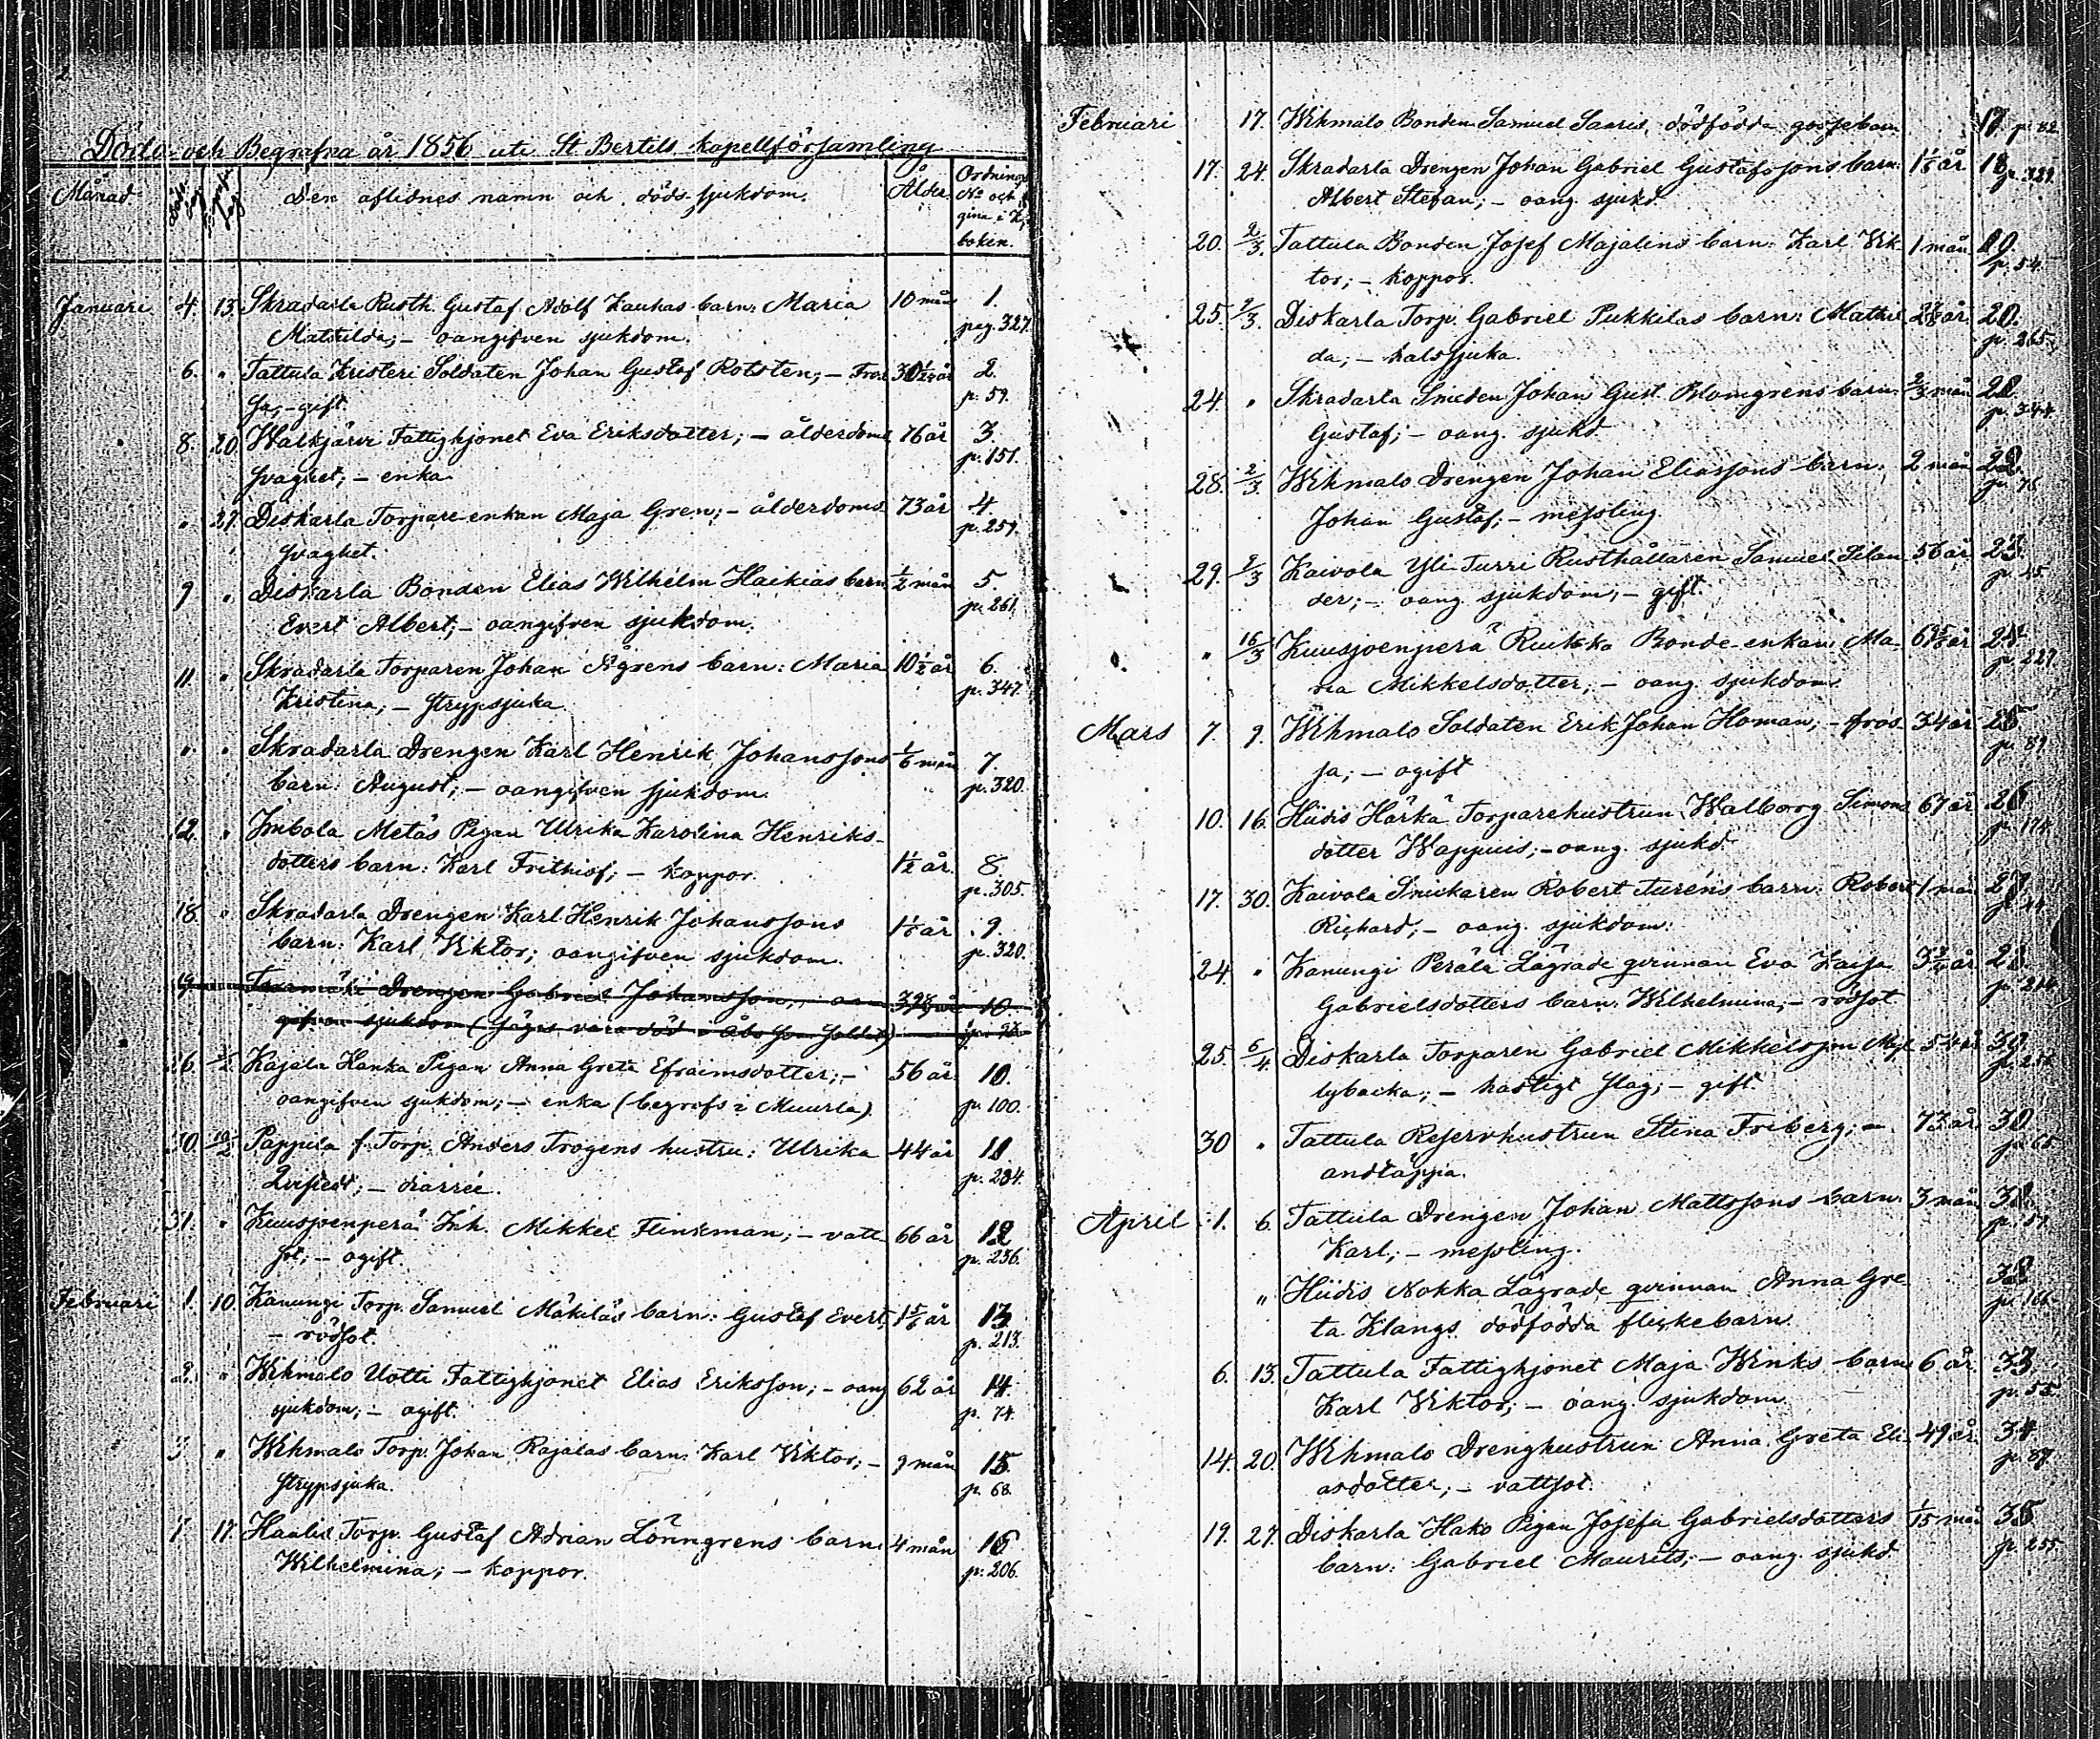 2
Döda och Begrafna år 1856 uti St Bertils kapellförsamling
Månad Död dag Begrafn. dag Den aflidnes namn och döds-sjukdom. Ålder. Ordnings
No och
gina i K.
boken.
Januari 4. 13. Skradarla Rusth. Gustaf Adolf Kaukas barn: Maria 10 mån 1.
Mathilda; – oangifven sjukdom. pag. 327.
6. " Tattula Kristeri Soldaten Johan Gustaf Rotsten; – Fros 2.
sa; – gift. p. 59.
8. 20. Walkjärvi Fattighjonet Eva Eriksdotter; – ålderdoms 76 år 3.
svaghet; – enka p. 151.
" 27. Diskarla Torpare-enkan Maja Gren; – ålderdoms 73 år 4.
svaghet. p. 259.
9 " Diskarla Bonden Elias Wilhelm Haikias barn 1/2 mån 5
Evert Albert; – oangifven sjukdom. p. 261.
11 " Skradarla Torparen Johan Ågrens barn: Maria 10 1/2 år 6.
Kristina; – strypsjuka p. 347.
" " Skradarla Drengen Karl Henrik Johanssons 1/6 mån 7.
barn: August; – oangifven sjukdom. p. 320.
12. " Imbola Metäs Pigan Ulrika Karolina Henriks-
dotters barn: Karl Frithiof; – koppor. 1 1/2 år. 8.
p. 305.
18. " Skradarla Drengen Karl Henrik Johanssons 1 1/6 år 9.
barn: Karl Viktor; oangifven sjukdom. p. 320.
19 Drengen Gabriel Johansson, 10
gifven sjukdom (säges vara död i Åbo som soldat)
26. Kajala Hanka Pigan Anna Greta Efraimsdotter; – 56 år. 10.
oangifven sjukdom; – enka (begrafs i Muurla) p. 100.
30. 10/2 Pappula f. Torp. Anders Trogens hustru: Ulrika 44 år 11.
Qvist; – diarrée. p. 234.
31. " Kuusjoenperä Inh. Mikkel Flinkman; – vatt 66 år 12
sot; – ogift. p. 236.
Februari 1. 10. Kanungi Torp. Samuel Mäkiläs barn: Gustaf Evert 1 5/6 år 13
– rödsot. p. 213.
2. " Wihmalo Uotti Fattighjonet Elias Eriksson; – oang 62 år 14
sjukdom; – ogift. p. 74.
3 " Wihmalo Torp. Johan Rajalas barn: Karl Viktor; – 9 mån 15
strypsjuka. p. 68.
7. 17. Torp. Gustaf Adrian Lönngrens barn 4 mån 16
Wilhelmina; – koppor. p. 206.
Februari 17. Wihmalo Bonden Samuel Saaris dödfödda gossebarn 17 p. 82.
17. 24. Skradarla Drengen Johan Gabriel Gustafssons barn 18 p. 329.
Albert Stefan; – oang. sjukd.
20. 2/3. Tattula Bonden Josef Majalins barn: Karl Vik 1 mån 19.
tor; – koppor. p. 54.
25. 2/3. Diskarla Torp. Gabriel Pukkilas barn: Mathil 20.
da; – halssjuka. p. 265.
24. " Skradarla Smeden Johan Gust. Blomgrens barn 2/3 mån 21.
Gustaf; – oang. sjukd. p. 344
28. 2/3. Wihmalo Drengen Johan Eliassons barn: 2 mån 22.
Johan Gustaf; – messling.
29. 2/3 Kaivola Yli-Turri Rusthållaren Samuel Silan 56 år 23
der; – oang. sjukdom; – gift. p. 45.
" 16/3 Kuusjoenperä Ruikka Bonde-enkan Ma 24
ria Mikkelsdotter; – oang. sjukdom p. 227.
Mars 7. 9. Wihmalo Soldaten Erik Johan Homan; – fros- 34 år 25
sa; – ogift p. 89.
10. 16. Hiidis Härkä Torparehustrun Walborg Simons 67 år 26
dotter Wappuis; – oang. sjukd. p. 174.
17. 30. Kaivola Snickaren Robert Turéns barn: Robert 1 mån 27
Richard; – oang. sjukdom.
24. " Kanungi Perälä Lägrade qvinnan Eva Kaisa 28
Gabrielsdotters barn: Wilhelmina; – rödsot p. 214
25. 6/4. Diskarla Torparen Gabriel Mikkelsson Myl 54 år
lybacka; – hastigt slag; – gift
30 " Tattula Reservhustrun Stina Friberg; – 73 år. 30
andtäppa. p. 65
April 1. 6. Tattula Drengen Johan Mattssons barn 3 mån 31.
Karl; – messling. p. 57.
" Hiidis Nokka Lägrade qvinnan Anna Gre- 32.
ta Klangs dödfödda flickebarn.
6. 13. Tattula Fattighjonet Maja Winks barn 6 år 33
Karl Viktor; – oang. sjukdom p. 55.
14. 20. Wihmalo Drenghustrun Anna Greta Eli- 49 år. 34
asdotter; – vattsot. p. 87.
19. 27. Diskarla Hako Pigan Josefa Gabrielsdotters 1/15 mån 35
barn: Gabriel Maurits; – oang. sjukd. p. 255.